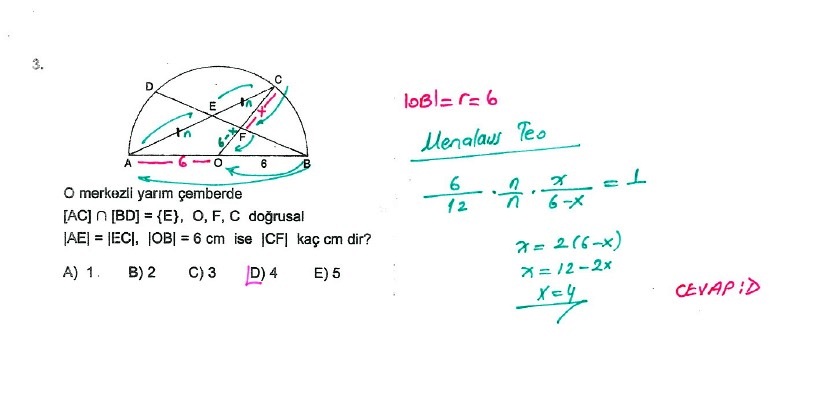 3.
D
C
E
n
x
n
6-x
F
A
6
O
6
B
O merkezli yarım çemberde
[AC] ∩ [BD] = {E}, O, F, C doğrusal
|AE| = |EC|, |OB| = 6 cm ise |CF| kaç cm dir?
A) 1. B) 2 C) 3 D) 4 E) 5
|OB| = r = 6
Menalaus Teo
6/12 · n/n · x/6-x = 1
x = 2(6-x)
x = 12-2x
x = 4
CEVAP: D